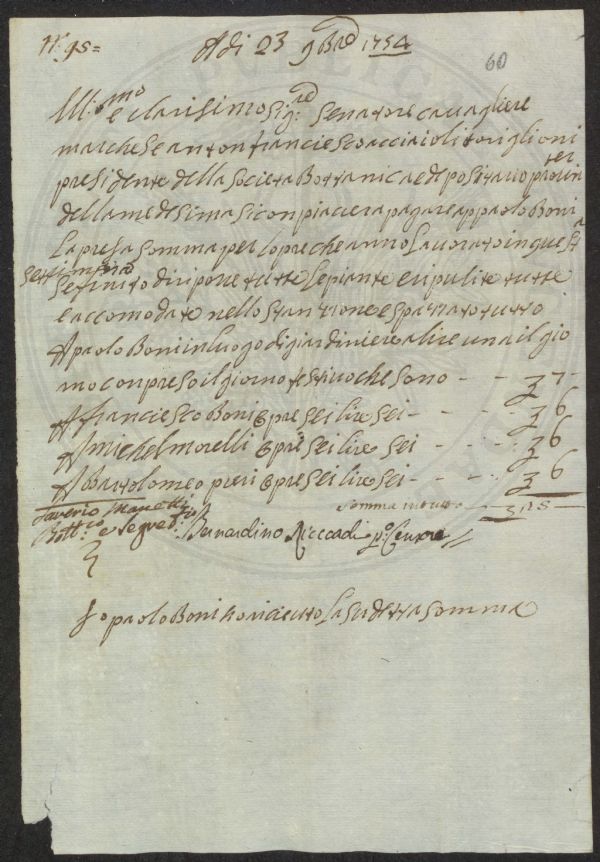 N.º 95=
Adi 23 9bre 1754
60
Ill.mo e clarisimo Sig.re Senatore cavagliere
marchese anton franciesco acciaioli toriglioni
presidente della societa Bottanica e depositario
della medesima si conpiaciera pagare a ppaolo Boni
la presa somma per lopre che anno lavorato in questa
settimana
Se finito di riporre tutte le piante e ripulite tutte
e accomodate nello stanzione e spazzato tutto
A paolo Boni in luogo di giardiniere a lire una il gio
rno conpreso il giorno festivo che sono - - £ 7 -
A franciesco Boni opre sei lire sei - - - £ 6
A michel morelli opre sei lire sei - - - £ 6
A Bartolomeo pieri opre sei lire sei - - - £ 6
Somma in tutto - £ 25 -
Saverio Manetti
Bott.co e Segret.rio
Bernardino Riccardi P.º Censore
Io paolo Boni ho ricieuto la sudetta somma